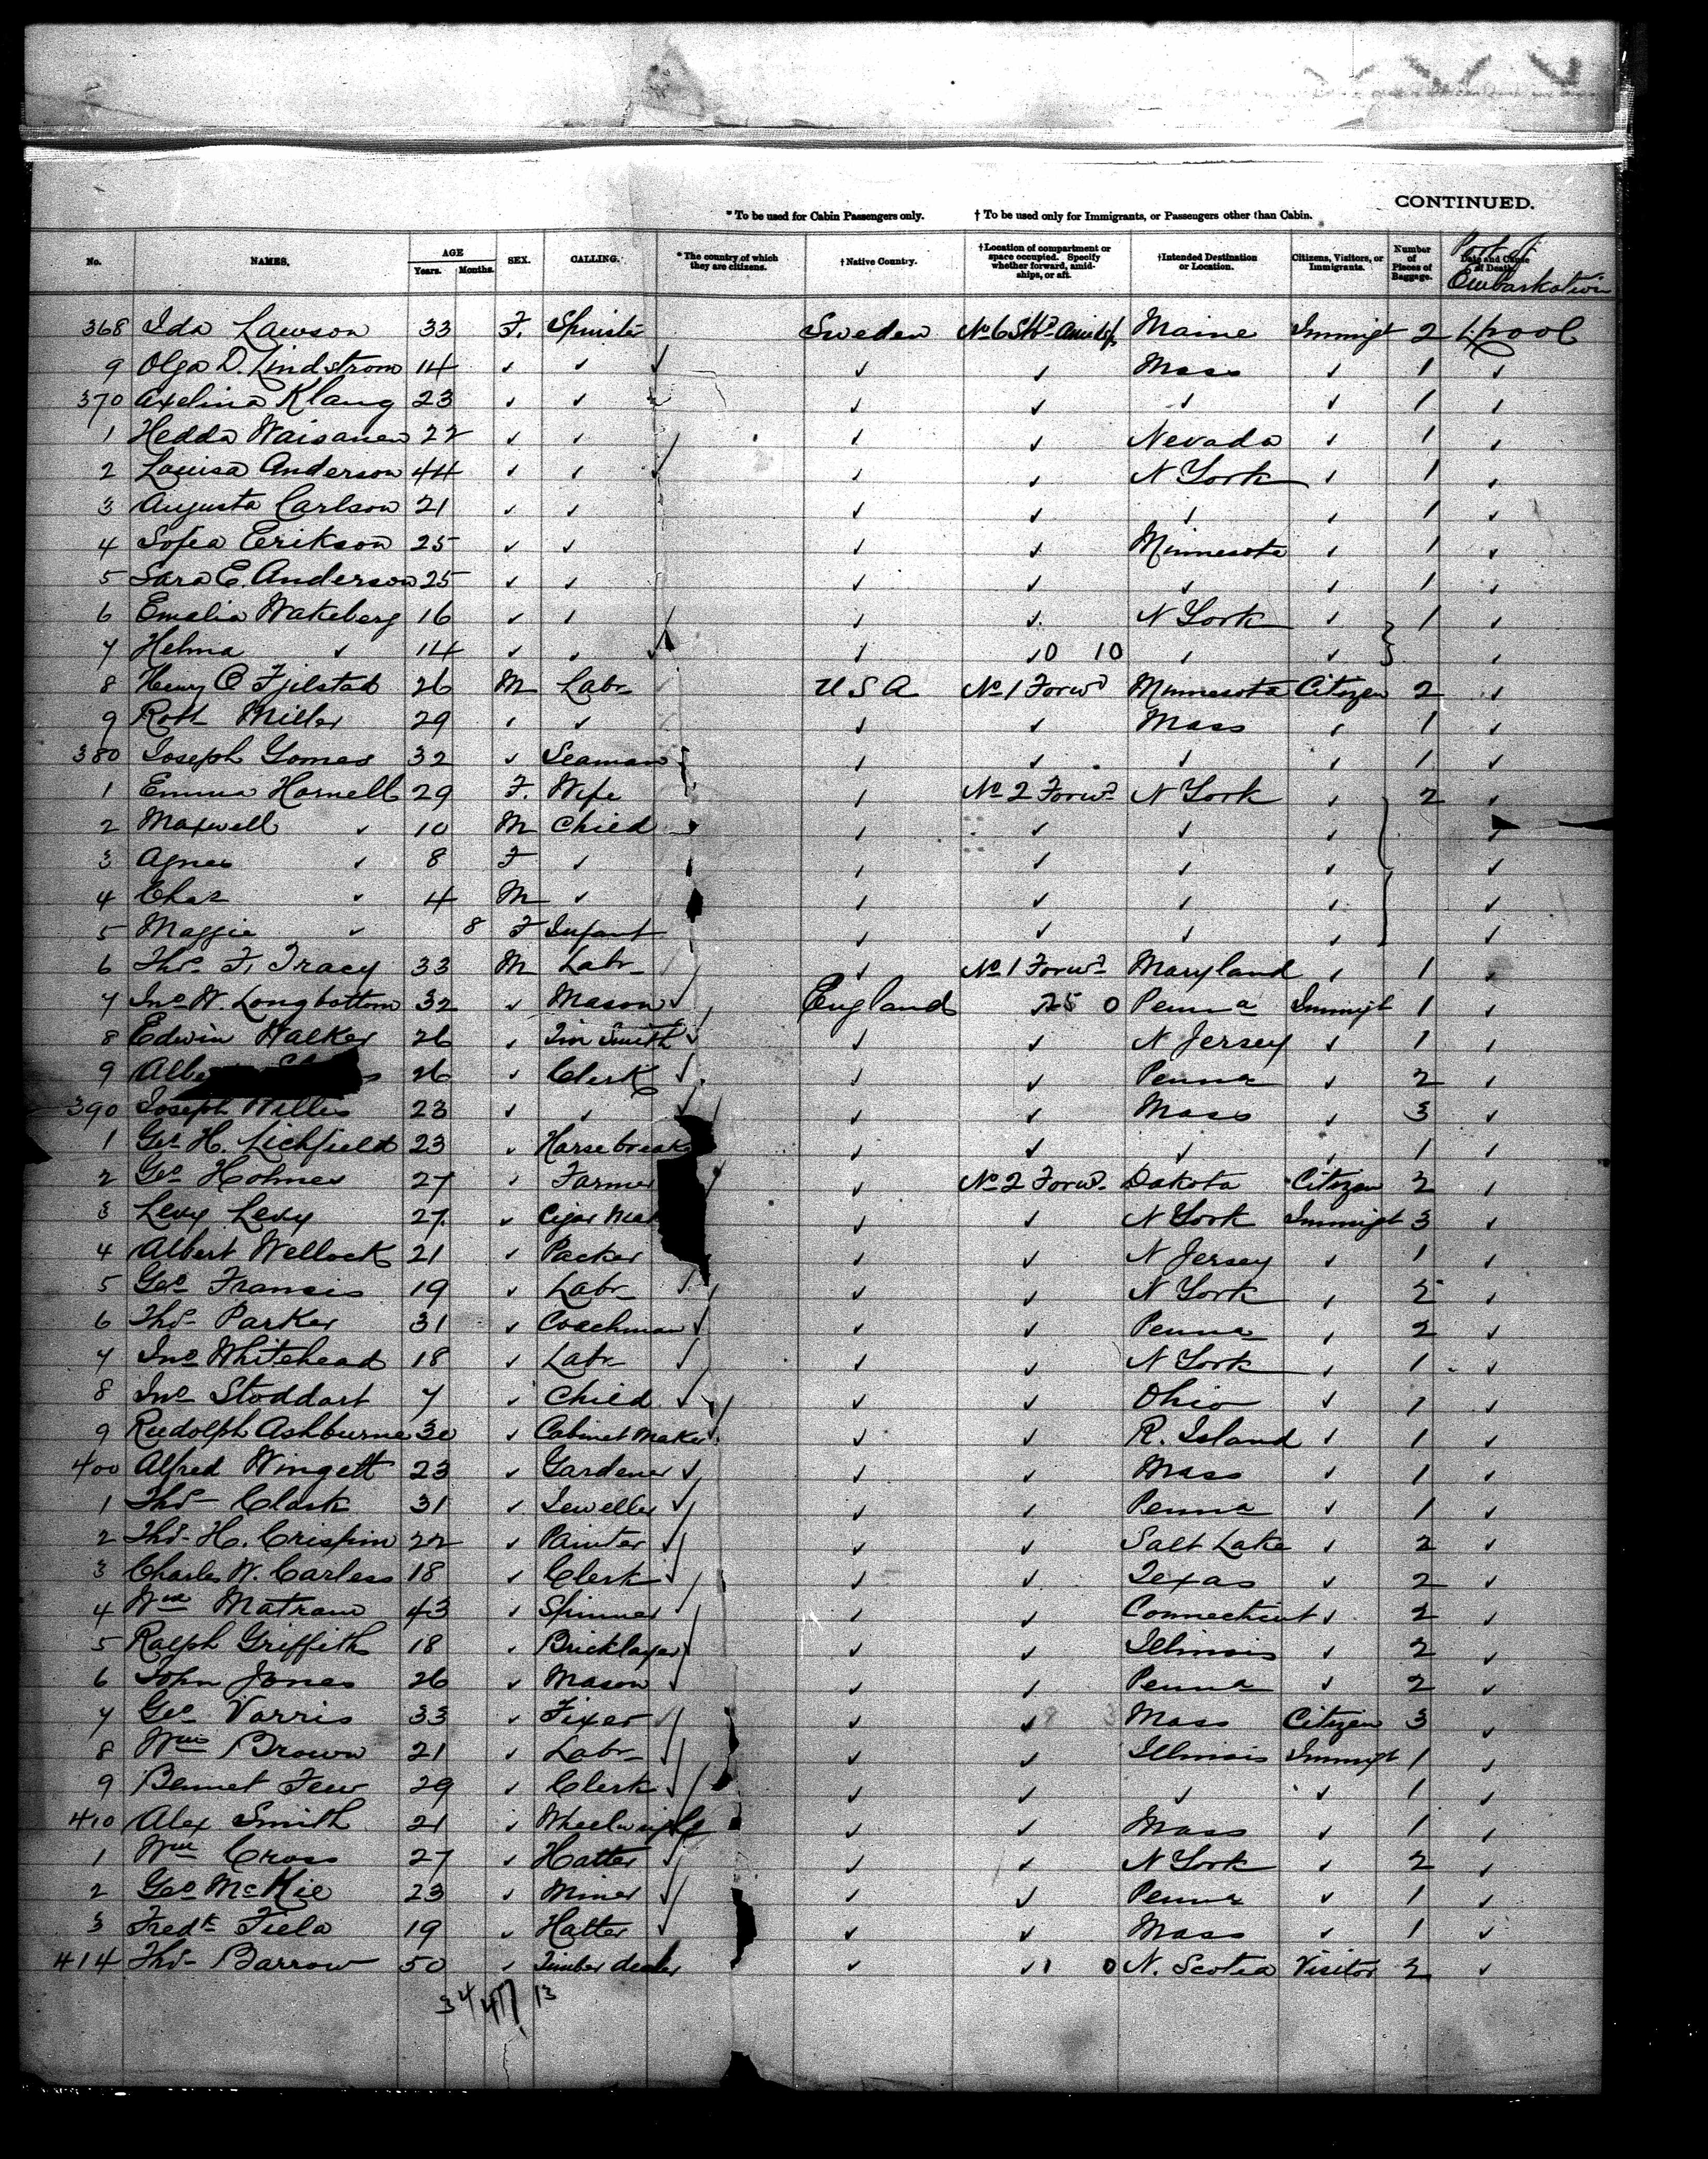 CONTINUED.
* To be used for Cabin Passengers only. † To be used only for Immigrants, or Passengers other than Cabin.
No. NAMES. AGE Years. Months. SEX. CALLING. * The country of which they are citizens. † Native Country. † Location of compartment or space occupied. Specify whether forward, amidships, or aft. † Intended Destination or Location. Citizens, Visitors, or Immigrants. Number of Pieces of Baggage. Date and Cause of Death. Port of Embarkation
368 Ida Lawson 33 F. Spinster Sweden No 6 Maine Immigt 2 L'pool
9 Olga D. Lindstrom 14 ✓ ✓ ✓ ✓ Mass ✓ 1 ✓
370 Axelina Klang 23 ✓ ✓ ✓ ✓ ✓ ✓ 1 ✓
1 Hedda Waisanen 22 ✓ ✓ ✓ ✓ Nevada ✓ 1 ✓
2 Louisa Anderson 44 ✓ ✓ ✓ ✓ N York ✓ 1 ✓
3 Augusta Carlson 21 ✓ ✓ ✓ ✓ ✓ ✓ 1 ✓
4 Sofia Erikson 25 ✓ ✓ ✓ ✓ Minnesota ✓ 1 ✓
5 Sara E. Anderson 25 ✓ ✓ ✓ ✓ ✓ ✓ 1 ✓
6 Emalia Wakeberg 16 ✓ ✓ ✓ ✓ N York ✓ 1 ✓
7 Helma ✓ 14 ✓ ✓ ✓ ✓ 0 10 ✓ ✓ ✓
8 Henry O Fjilstad 26 M Labr USA No 1 Forwd Minnesota Citizen 2 ✓
9 Robt Miller 29 ✓ ✓ ✓ ✓ Mass ✓ 1 ✓
380 Joseph Gomes 32 ✓ Seaman ✓ ✓ ✓ ✓ 1 ✓
1 Emma Hornell 29 F. Wife ✓ No 2 Forwd N York ✓ 2 ✓
2 Maxwell ✓ 10 M Child ✓ ✓ ✓ ✓ ✓
3 Agnes ✓ 8 F ✓ ✓ ✓ ✓ ✓ ✓
4 Chas ✓ 4 M ✓ ✓ ✓ ✓ ✓ ✓
5 Maggie ✓ 8 F Infant ✓ ✓ ✓ ✓ ✓
6 Thos F. Tracy 33 M Labr ✓ No 1 Forwd Maryland ✓ 1 ✓
7 Jno W. Longbottom 32 ✓ Mason England 25 0 Penna Immigt 1 ✓
8 Edwin Walker 26 ✓ Tin Smith ✓ ✓ N Jersey ✓ 1 ✓
9 26 ✓ Clerk ✓ ✓ Penna ✓ 2 ✓
390 Joseph Willis 23 ✓ ✓ ✓ ✓ Mass ✓ 3 ✓
1 Geo H. Lichfield 23 ✓ Horse break ✓ ✓ ✓ ✓ 1 ✓
2 Geo Holmes 27 ✓ Farmer ✓ No 2 Forwd. Dakota Citizen 2 ✓
3 Levy Levy 27 ✓ Cigar Mak ✓ ✓ N York Immigt 3 ✓
4 Albert Wellock 21 ✓ Packer ✓ ✓ N Jersey ✓ 1 ✓
5 Geo Francis 19 ✓ Labr ✓ ✓ N York ✓ 2 ✓
6 Thos Parker 31 ✓ Coachman ✓ ✓ Penna ✓ 2 ✓
7 Jno Whitehead 18 ✓ Labr ✓ ✓ N York ✓ 1 ✓
8 Jno Stoddart 7 ✓ Child ✓ ✓ Ohio ✓ 1 ✓
9 Rudolph Ashburne 30 ✓ Cabinet Maker ✓ ✓ R. Island ✓ 1 ✓
400 Alfred Wingett 23 ✓ Gardener ✓ ✓ Mass ✓ 1 ✓
1 Thos Clark 31 ✓ Jeweller ✓ ✓ Penna ✓ 1 ✓
2 Thos H. Crispin 22 ✓ Painter ✓ ✓ Salt Lake ✓ 2 ✓
3 Charles W. Carless 18 ✓ Clerk ✓ ✓ Texas ✓ 2 ✓
4 Wm Matram 43 ✓ Spinner ✓ ✓ Connecticut ✓ 2 ✓
5 Ralph Griffith 18 ✓ Bricklayer ✓ ✓ Illinois ✓ 2 ✓
6 John Jones 26 ✓ Mason ✓ ✓ Penna ✓ 2 ✓
7 Geo Varris 33 ✓ Fixer ✓ ✓ Mass Citizen 3 ✓
8 Wm Brown 21 ✓ Labr ✓ ✓ Illinois Immigt 1 ✓
9 Bennet Few 29 ✓ Clerk ✓ ✓ ✓ ✓ 1 ✓
410 Alex Smith 21 ✓ Wheelwright ✓ ✓ Mass ✓ 1 ✓
1 Wm Cross 27 ✓ Hatter ✓ ✓ N York ✓ 2 ✓
2 Geo McKie 23 ✓ Miner ✓ ✓ Penna ✓ 1 ✓
3 Fredk Fiela 19 ✓ Hatter ✓ ✓ Mass ✓ 1 ✓
414 Thos Barrow 50 ✓ Timber dealer ✓ ✓ 1 0 N. Scotia Visitor 2 ✓
34 47 13